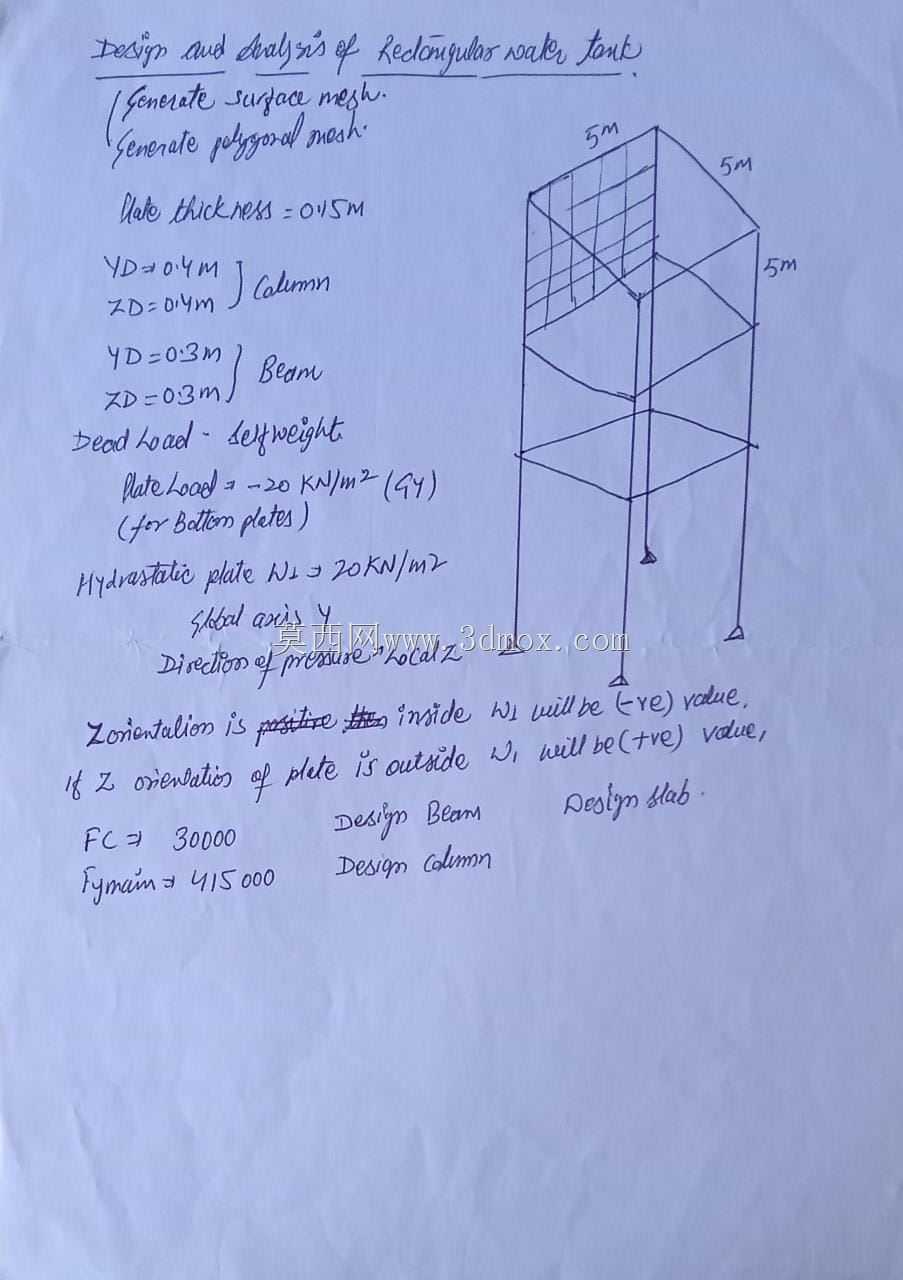 Design and Analysis of Rectangular water tank.
Generate surface mesh.
Generate polygonal mesh.
5m
5m
5m
Plate thickness = 0.15m
YD ⇒ 0.4m
ZD = 0.4m
Column
YD = 0.3m
ZD = 0.3m
Beam
Dead Load - Selfweight.
Plate Load ⇒ -20 KN/m2 (GY)
(for Bottom plates)
Hydrastatic plate W1 ⇒ 20KN/m2
Global axis Y
莫西网www.3dmox.com
Direction of pressure ⇒ Local Z
Z orientation is positive then inside W1 will be (-ve) value.
If Z orientation of plate is outside W1 will be (+ve) value,
FC ⇒ 30000 Design Beam Design slab.
Fymain ⇒ 415000 Design Column